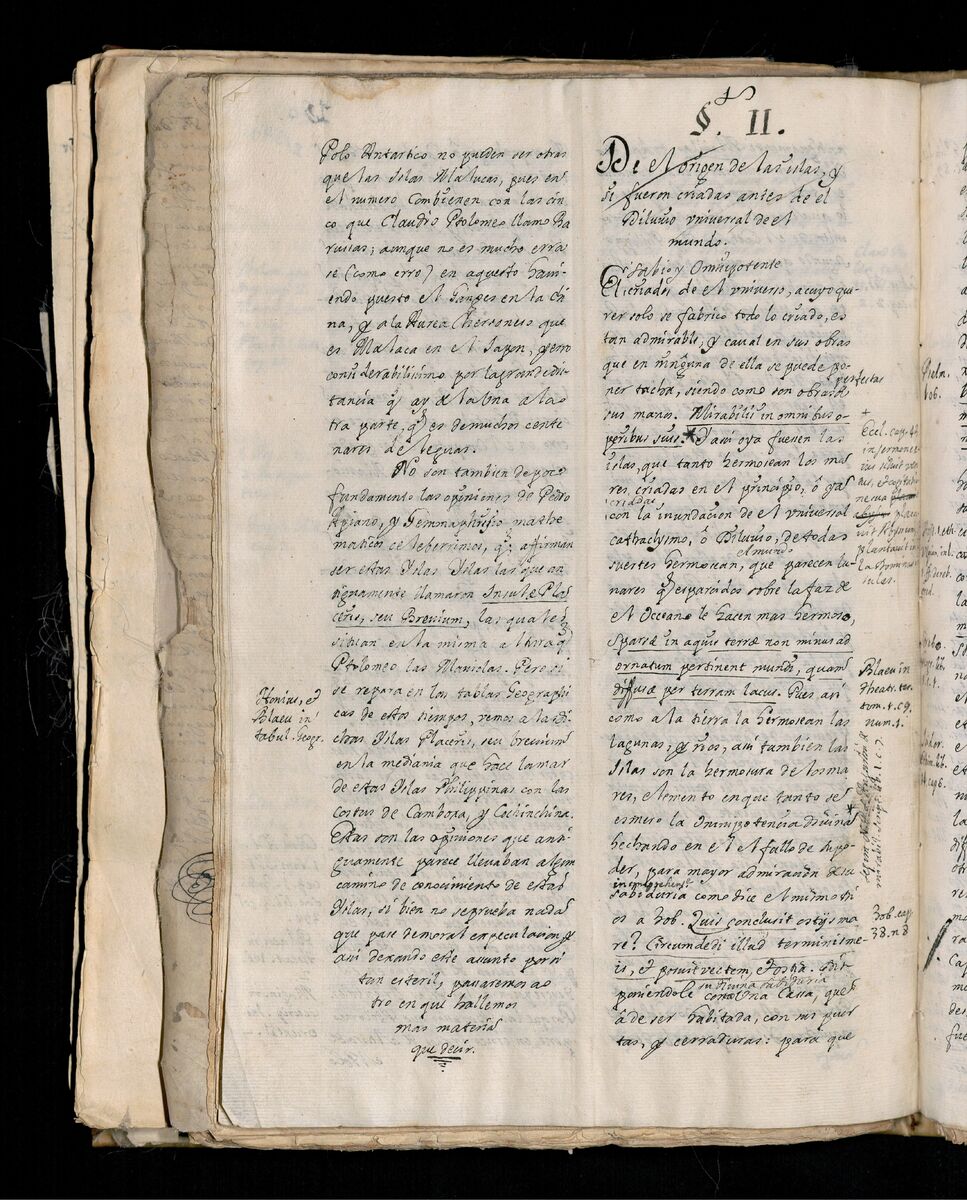 Polo Antartico no pueden ser otras
que las Yslas Malucas, pues en
el numero Combienen con las cin
co que Claudio Ptolomeo llamo Ba
rusias; aunque no es mucho erra
se (como erro) en aquesto havi-
endo puesto el Ganges en la Chi
na, y a la Aurea Chersoneso que
es Malaca en el Japon, yerro
considerabilissimo por la grande dis
tancia q̃ ay de la una a la o
tra parte, q̃ es de muchos cente
nares de leguas.
No son tambien de poco
fundamento las opiniones de Pedro
Apiano, y Gemma phrisio mathe
maticos celeberrimos, q̃ affirman
ser estas Yslas Yslas las que an
tiguamente llamaron Insulæ Pla
ceris, seu Brevium, las quales
situan en la misma altura q̃
Ptolomeo las Maniolas. Pero si
se repara en las tablas Geographi
cas de estos tiempos, vemos a las di
chas Yslas Placeris, seu brevium
en la mediania que hace la mar
de estas Yslas Philippinas con las
costas de Camboxa, y Cochinchina.
Estas son las opiniones que anti
guamente parece llevaban algun
camino de conocimiento de estas
Yslas, si bien no se prueba nada
que pase de moral expeculacion, y
asi dexando este asunto por si
tan esteril, pasaremos ao
tro en que hallemos
mas materia
que decir.
et
Blaeu in
tabul. Geogr.
§. II.
De el origen de las islas, y
si fueron criadas antes de el
Diluvio universal de el
mundo.
sabio y Omnipotente
El criador de el universo, a cuyo que-
rer solo se fabrico todo lo criado, es
tan admirable, y caval en sus obras
que en ninguna de ella se puede po
ner tacha, siendo como son obras de perfectas
sus manos. Mirabilis in omnibus o-
peribus suis.* Y asi oya fuesen las
islas, que tanto hermosean los ma
res, criadas en el principio, ô ya
criadas
con la inundacion de el universal
cathaclysmo, ô Diluvio, de todas
el mundo
suertes hermosean, que parecen lu-
nares q̃ esparcidos sobre la faz de
el Occeano le hacen mas hermoso,
Sparsæ in aquis terræ non minus ad
ornatum pertinent mundi, quam
diffusæ per terram lacus. Pues asi
como a la tierra la hermosean las
lagunas, y rios, asi tambien las
Islas son la hermosura de los ma
res, elemento en que tanto se
esmero la Omnipotencia divina *
hechando en el el fallo de su po
der, para mayor admiracion de su
incomprehensi
sabiduria como dice el mismo Di
os a Job. Quis conclusit ostijs ma
re? Circundedi illud terminis me-
is, et posui vectem, et ostia.
su divina sabiduria
poniendole como una Cassa, que
â de ser habitada, con sus puer
tas, y cerraduras: para que
+
Eccl. cap. 43
in sermone
Blaeu in
theatr. ter.
tom. 1. c 9.
num. 1.
Job. cap.
38. n 8